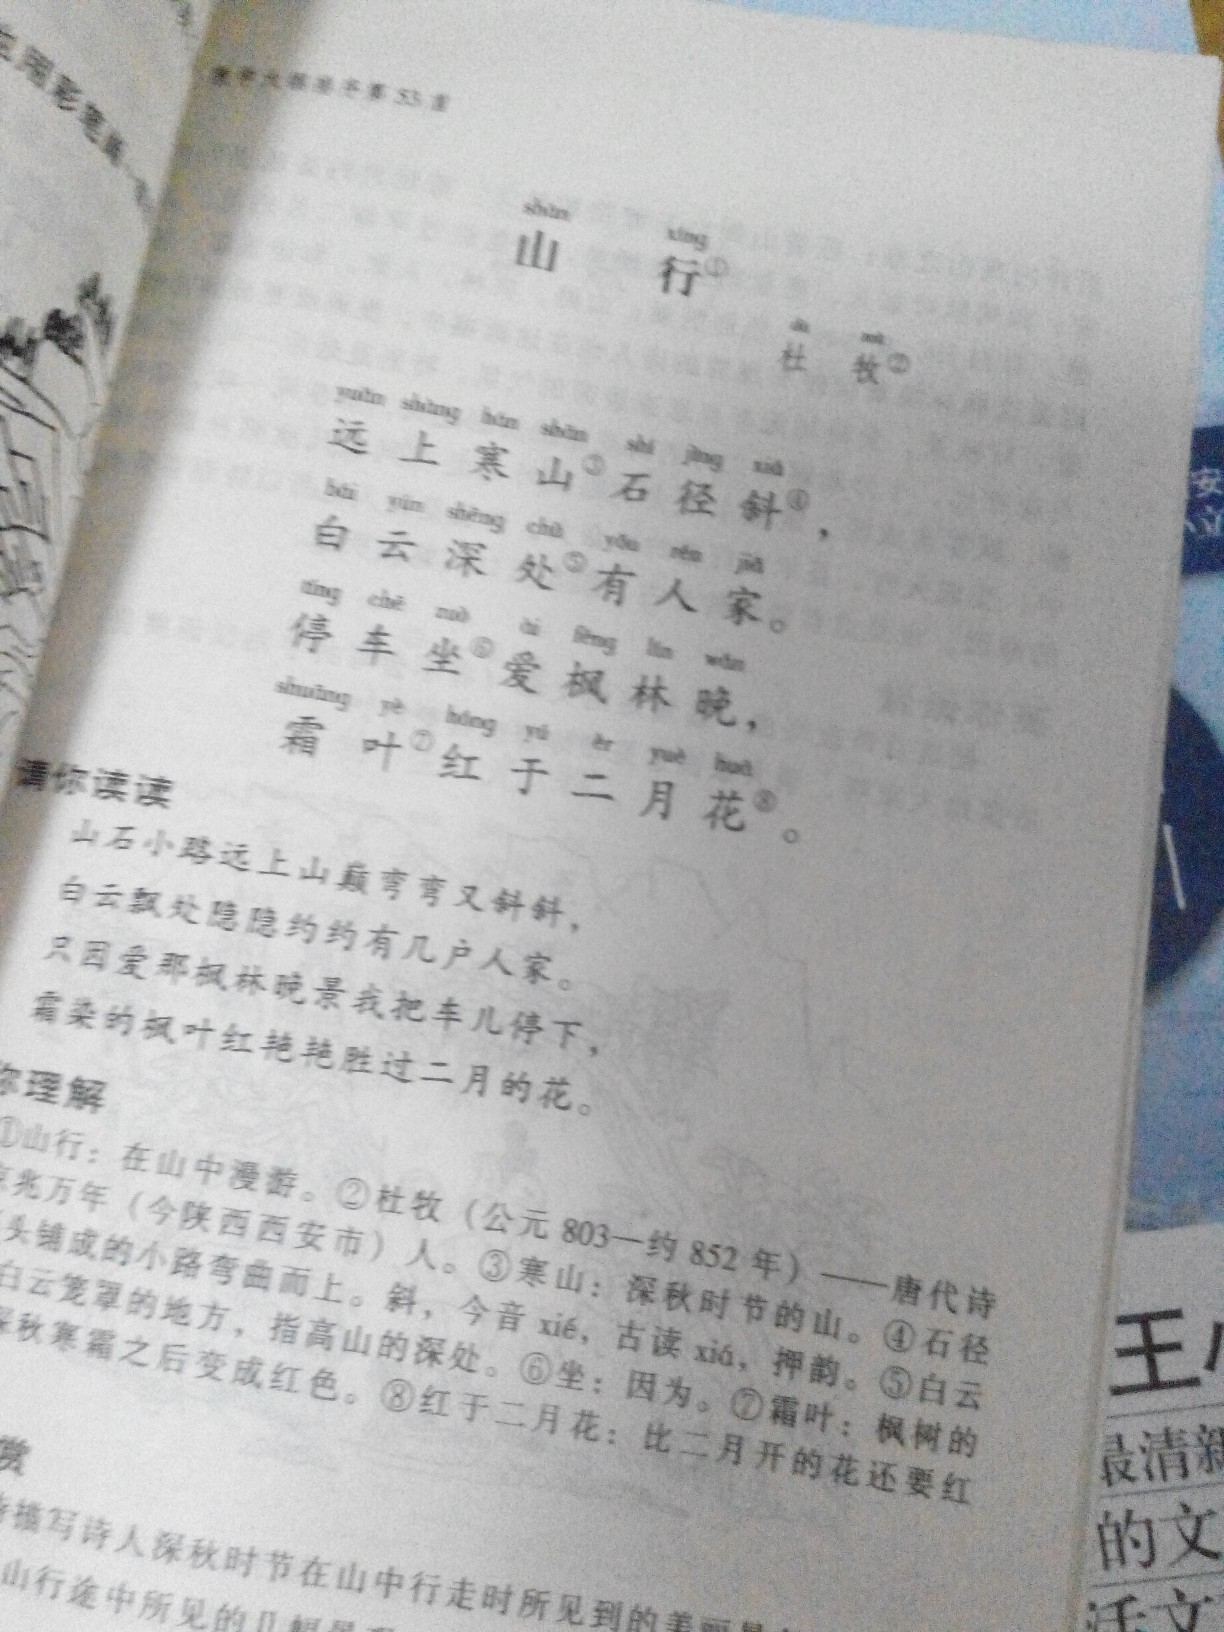 shān xíng
山 行①
dù mù
杜 牧②
yuǎn shàng hán shān shí jìng xiá
远上寒山③石径斜④，
bái yún shēng chù yǒu rén jiā
白云深处⑤有人家。
tíng chē zuò ài fēng lín wǎn
停车坐⑥爱枫林晚，
shuāng yè hóng yú èr yuè huā
霜叶⑦红于二月花⑧。
请你读读
山石小路远上山巅弯弯又斜斜，
白云飘处隐隐约约有几户人家。
只因爱那枫林晚景我把车儿停下，
霜染的枫叶红艳艳胜过二月的花。
你理解
①山行：在山中漫游。②杜牧（公元803—约852年）——唐代诗
京兆万年（今陕西西安市）人。③寒山：深秋时节的山。④石径
头铺成的小路弯曲而上。斜，今音xié，古读xiá，押韵。⑤白云
白云笼罩的地方，指高山的深处。⑥坐：因为。⑦霜叶：枫树的
深秋寒霜之后变成红色。⑧红于二月花：比二月开的花还要红
赏
诗描写诗人深秋时节在山中行走时所见到的美丽
山行途中所见的几幅
安
王
最清新
的文
活文